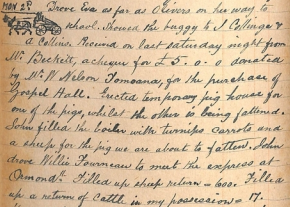 MON 2nd Drove Eva as far as Clevers on her way to
school. Showed the buggy to J Collinge &
A Collins. Received on last saturday night from
Mr Beckett, a cheque for £5.0.0 donated
by Mr W. Nelson Tomoana, for the purchase of
Gospel Hall. Erected temporary pig house for
one of the pigs, whilst the other is being fattened.
John filled the boiler with turnips carrots and
a sheep for the pig we are about to fatten. John
drove Willie Fourneau to meet the express at
Ormondt. Filled up sheep return = 600. Filled
up a return of cattle in my possession = 17.